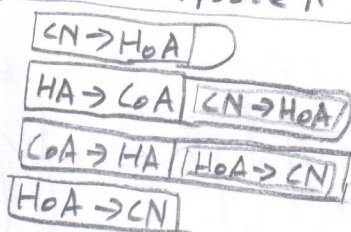 CN → HoA
HA → CoA CN → HoA
CoA → HA HoA → CN
HoA → CN